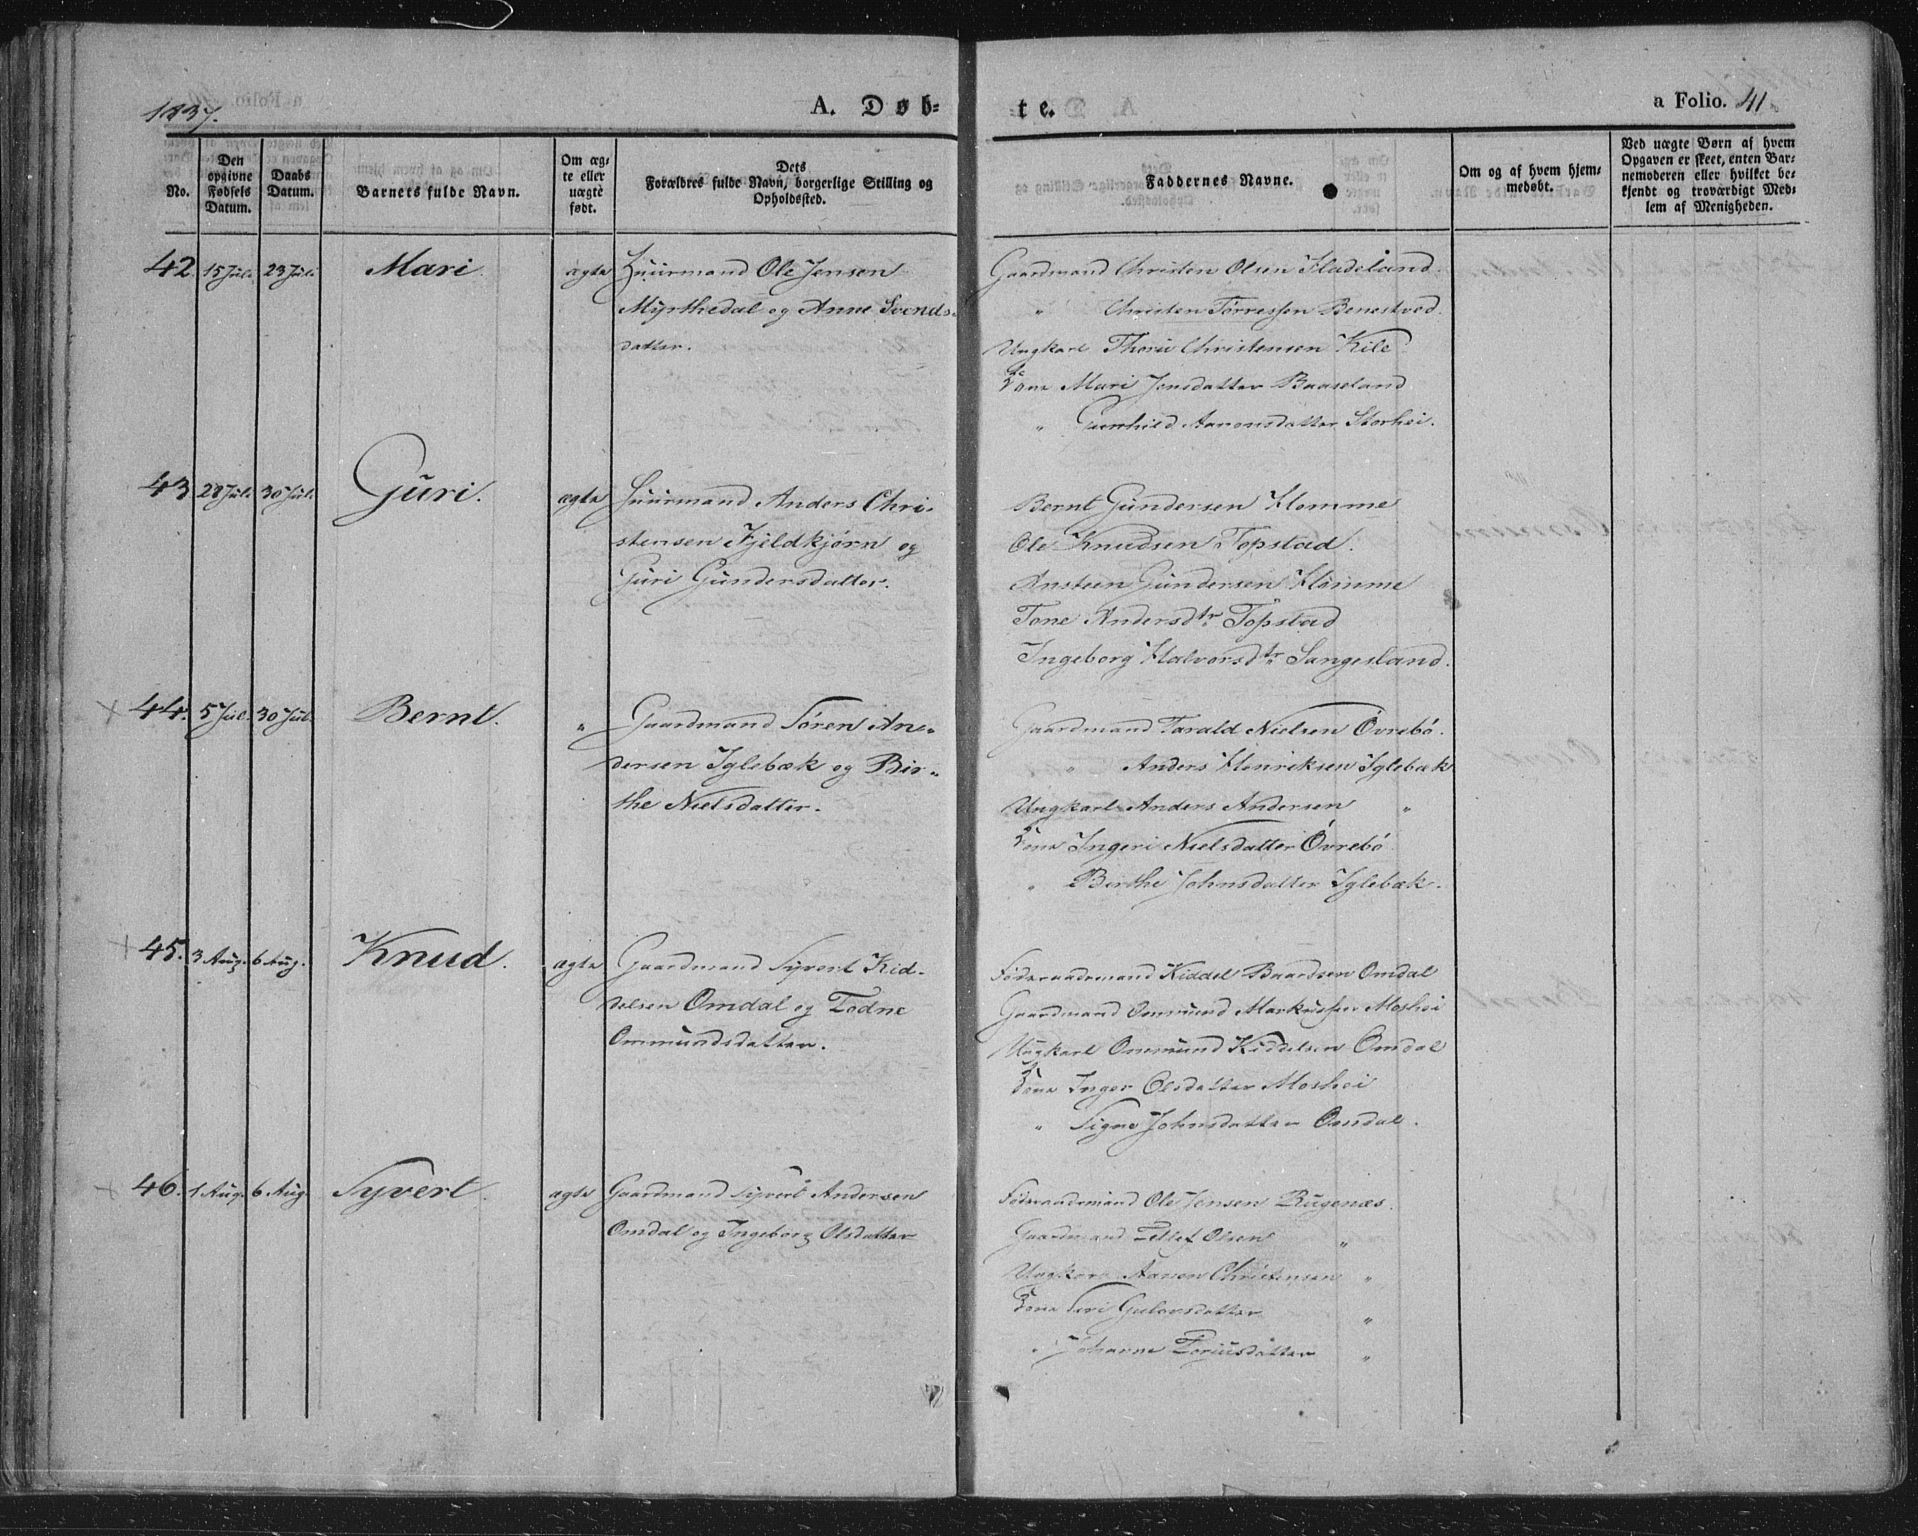 1837.
A. Døb-
te.
a Folio. 41.
No.
Den opgivne Fødsels Datum.
Daabs Datum.
Barnets fulde Navn.
Om æg-
te eller
uægte
født.
Dets
Forældres fulde Navn, borgerlige Stilling og
Opholdssted.
Faddernes Navne.
Om og af hvem hjem-
medøbt.
Ved uægte Børn af hvem
Opgaven er skeet, enten Bar-
nemoderen eller hvilket be-
kjendt og troværdigt Med-
lem af Menigheden.
42 15 Jul. 23 Jul. Mari ægte Huurmand Ole Jensen
Myrthedal og Anne Svends-
datter.
Gaardmand Christen Olsen Fladeland.
" Christen Tørressen Benestved.
Ungkarl Thore Christensen Kile
Kone Mari Jensdatter Baaseland
" Gunhild Aaronsdatter Storhei.
43 28 Jul. 30 Jul. Guri. ægte Huurmand Anders Chri-
stensen Fjeldkjørn og
Guri Gundersdatter.
Bernt Gundersen Homme
Ole Knudsen Topstad.
Ansteen Gundersen Homme
Tone Andersdtr Topstad
Ingeborg Halvorsdtr Sangesland.
44. 5 Jul. 30 Jul. Bernt. " Gaardmand Søren An-
dersen Iglebæk og Bir-
the Nielsdatter.
Gaardmand Tarald Nielsen Øvrebö.
" Anders Henriksen Iglebæk
Ungkarl Anders Andersen "
Kone Ingeri Nielsdatter Øvrebö
" Birthe Johnsdatter Iglebæk.
45. 3 Aug. 6 Aug. Knud. ægte Gaardmand Syvert Kid-
delsen Omdal og Todne
Ommundsdatter.
Föderaadsmand Kiddel Baardsen Omdal
Gaardmand Ommund Markussen Moshei
Ungkarl Ommund Kiddelsen Omdal
Kone Inger Olsdatter Moshei
" Signe Johnsdatter Omdal.
46. 1 Aug. 6 Aug. Syvert. ægte Gaardmand Syvert Andersen
Omdal og Ingeborg Olsdatter
Föderaadsmand Ole Jensen Rugenæs.
Gaardmand Tellef Olsen "
Ungkarl Aanon Christensen "
Kone Siri Gulovsdatter "
" Johanne Torjusdatter "